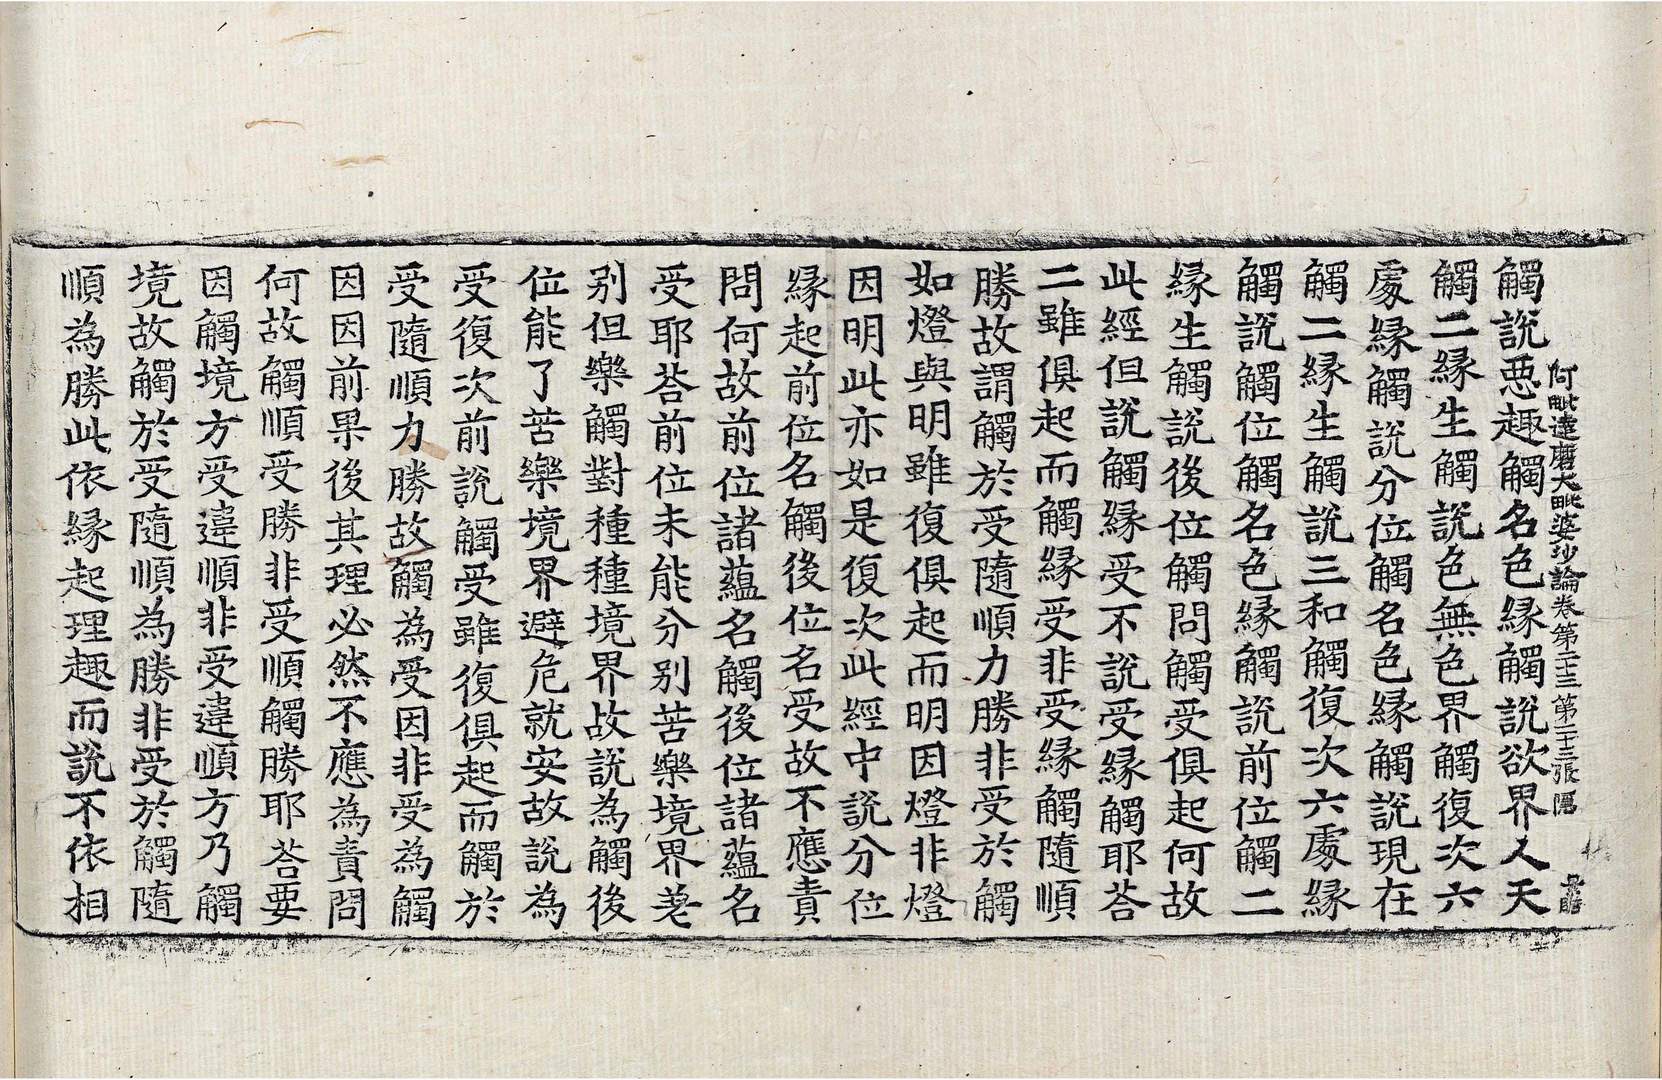 阿毗達磨大毗婆沙論卷第二十三 第二十三張 隱
觸說惡趣觸名色緣觸說欲界人天
觸二緣生觸說色無色界觸復次六
處緣觸說分位觸名色緣觸說現在
觸二緣生觸說三和觸復次六處緣
觸說觸位觸名色緣觸說前位觸二
緣生觸說後位觸問觸受俱起何故
此經但說觸緣受不說受緣觸耶荅
二雖俱起而觸緣受非受緣觸隨順
勝故謂觸於受隨順力勝非受於觸
如燈與明雖復俱起而明因燈非燈
因明此亦如是復次此經中說分位
緣起前位名觸後位名受故不應責
問何故前位諸蘊名觸後位諸蘊名
受耶荅前位未能分别苦樂境界差
别但樂觸對種種境界故說為觸後
位能了苦樂境界避危就安故說為
受復次前說觸受雖復俱起而觸於
受隨順力勝故觸為受因非受為觸
因因前果後其理必然不應為責問
何故觸順受勝非受順觸勝耶荅要
因觸境方受違順非受違順方乃觸
境故觸於受隨順為勝非受於觸隨
順為勝此依緣起理趣而說不依相